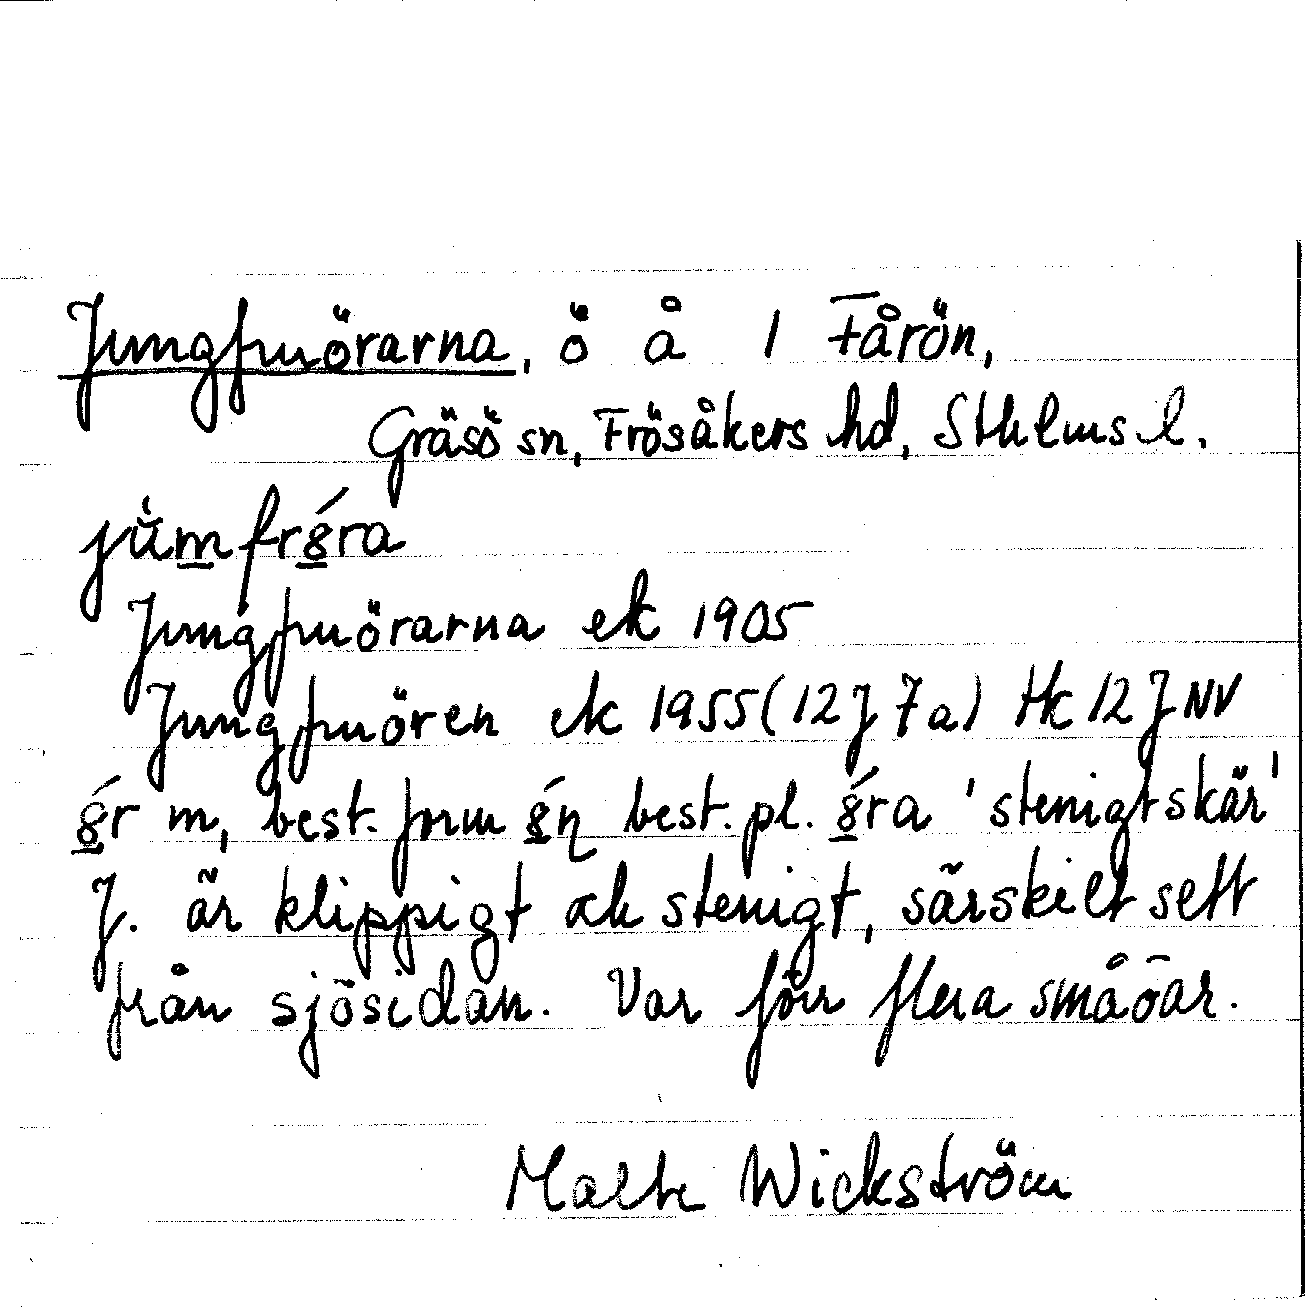 Jungfruörarna, ö å 1 Fårön,
Gräsö sn, Frösåkers hd, Sthlms l.
Jungfruörarna ek 1905
Jungfruören ek 1955 (12J 7a) Hk 12J NV
m, best. form best. pl. 'stenigt skär'
J. är klippigt och stenigt, särskilt sett
från sjösidan. Var förr flera småöar.
Malte Wickström